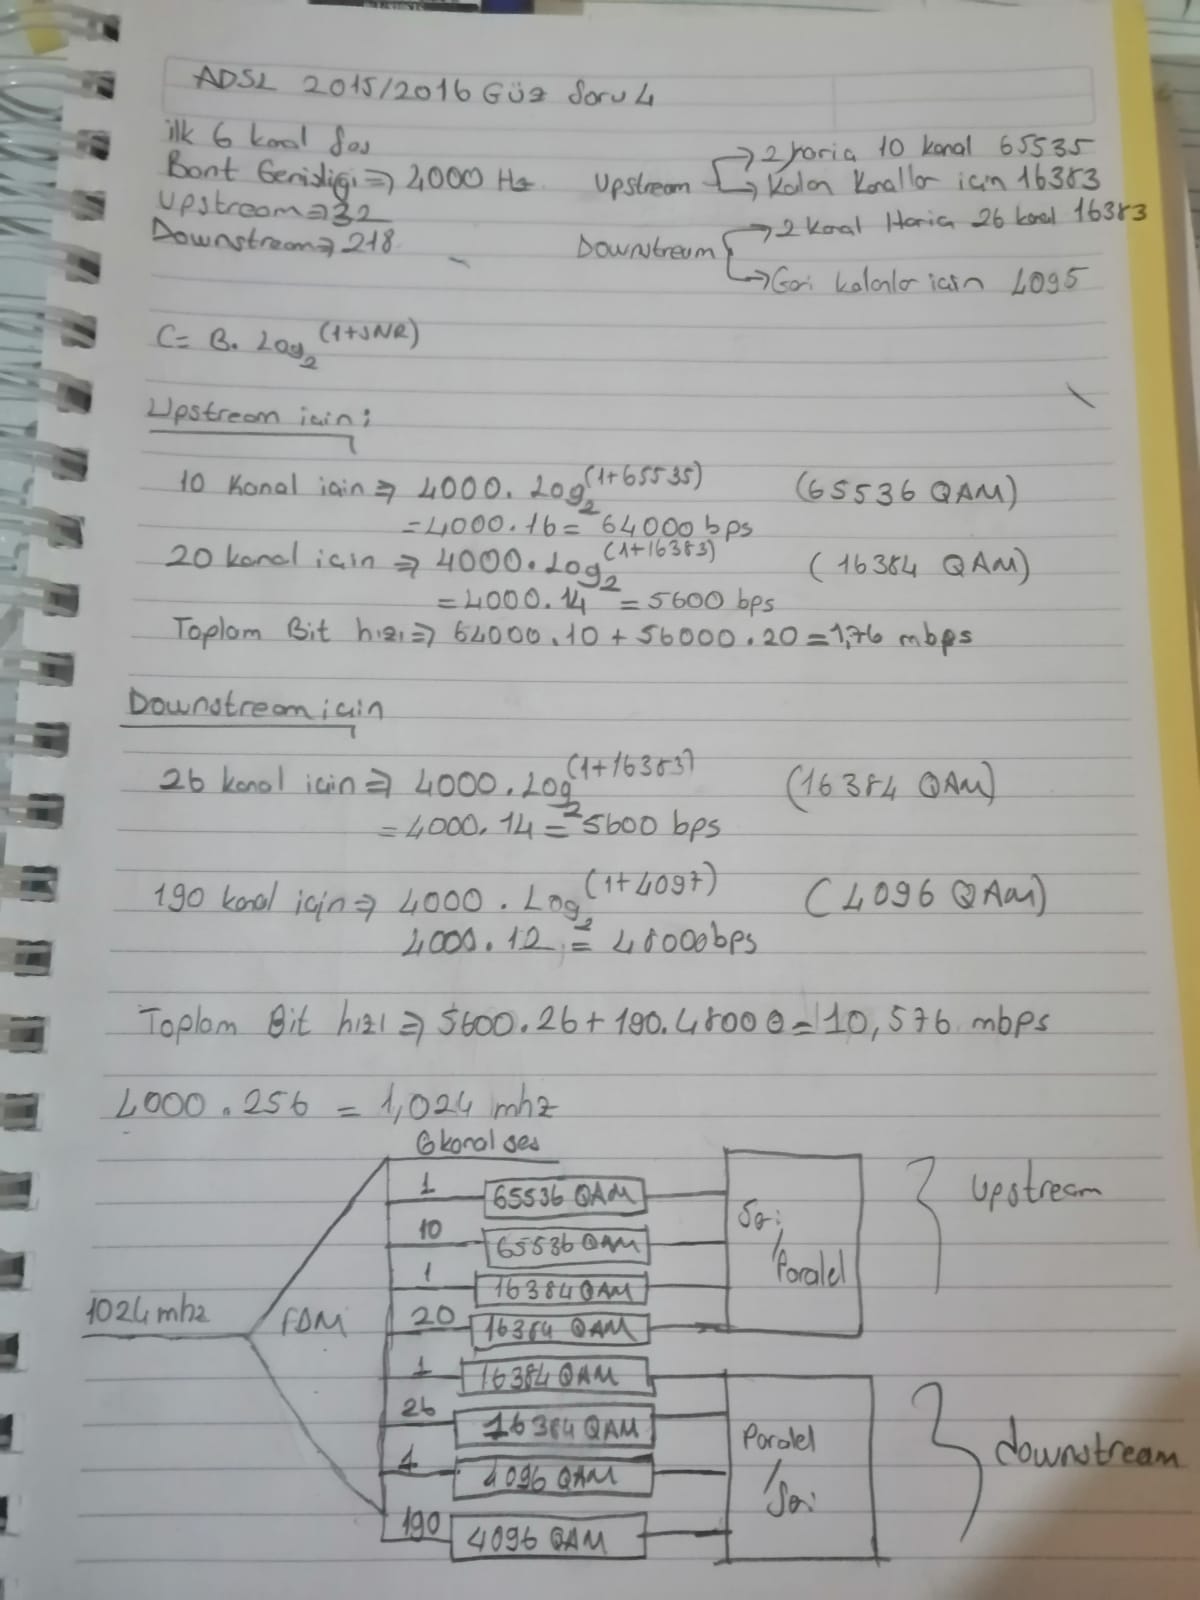 ADSL 2015/2016 Güz Soru 4
ilk 6 kanal Ses
Bant Genişliği ⇒ 4000 Hz
Upstream ⇒ 32
Downstream ⇒ 218
Upstream → 2 haric 10 kanal 65535
→ Kalan Kanallar için 16383
Downstream → 2 kanal Haric 26 kanal 16383
→ Geri kalanlar için 4095
C = B. Log₂(1+SNR)
Upstream için;
10 Kanal için ⇒ 4000. Log₂(1+65535) (65536 QAM)
= 4000.16 = 64000 bps
20 kanal için ⇒ 4000. Log₂(1+16383) (16384 QAM)
= 4000.14 = 5600 bps
Toplam Bit hızı ⇒ 64000.10 + 56000.20 = 1,76 mbps
Downstream için
26 kanal için ⇒ 4000. Log₂(1+16383) (16384 QAM)
= 4000.14 = 5600 bps
190 kanal için ⇒ 4000. Log₂(1+4097) (4096 QAM)
4000.12 = 48000bps
Toplam Bit hızı ⇒ 5600.26 + 190.48000 = 10,576 mbps
4000.256 = 1,024 mhz
6 kanal ses
1 65536 QAM
10 65536 QAM
1 16384 QAM
20 16384 QAM
Seri / Paralel
Upstream
1024 mhz FDM
1 16384 QAM
26 16384 QAM
1 4096 QAM
190 4096 QAM
Paralel / Seri
downstream